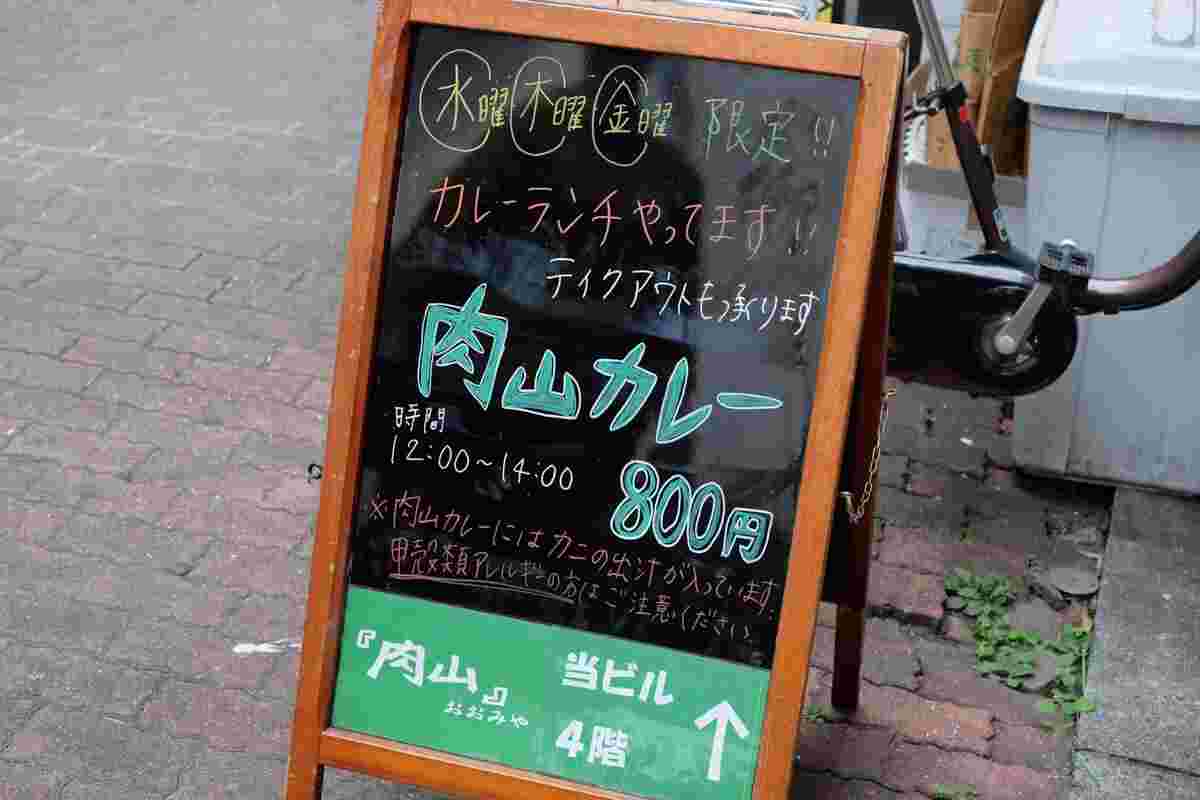 水曜木曜金曜 限定!!
カレーランチやってます!!
テイクアウトもっ承ります
肉山カレー
時間
12:00~14:00
800円
※肉山カレーにはカニの出汁が入っています.
甲殻類アレルギーの方はご注意ください
『肉山』 当ビル
おおみや
4階 ↑